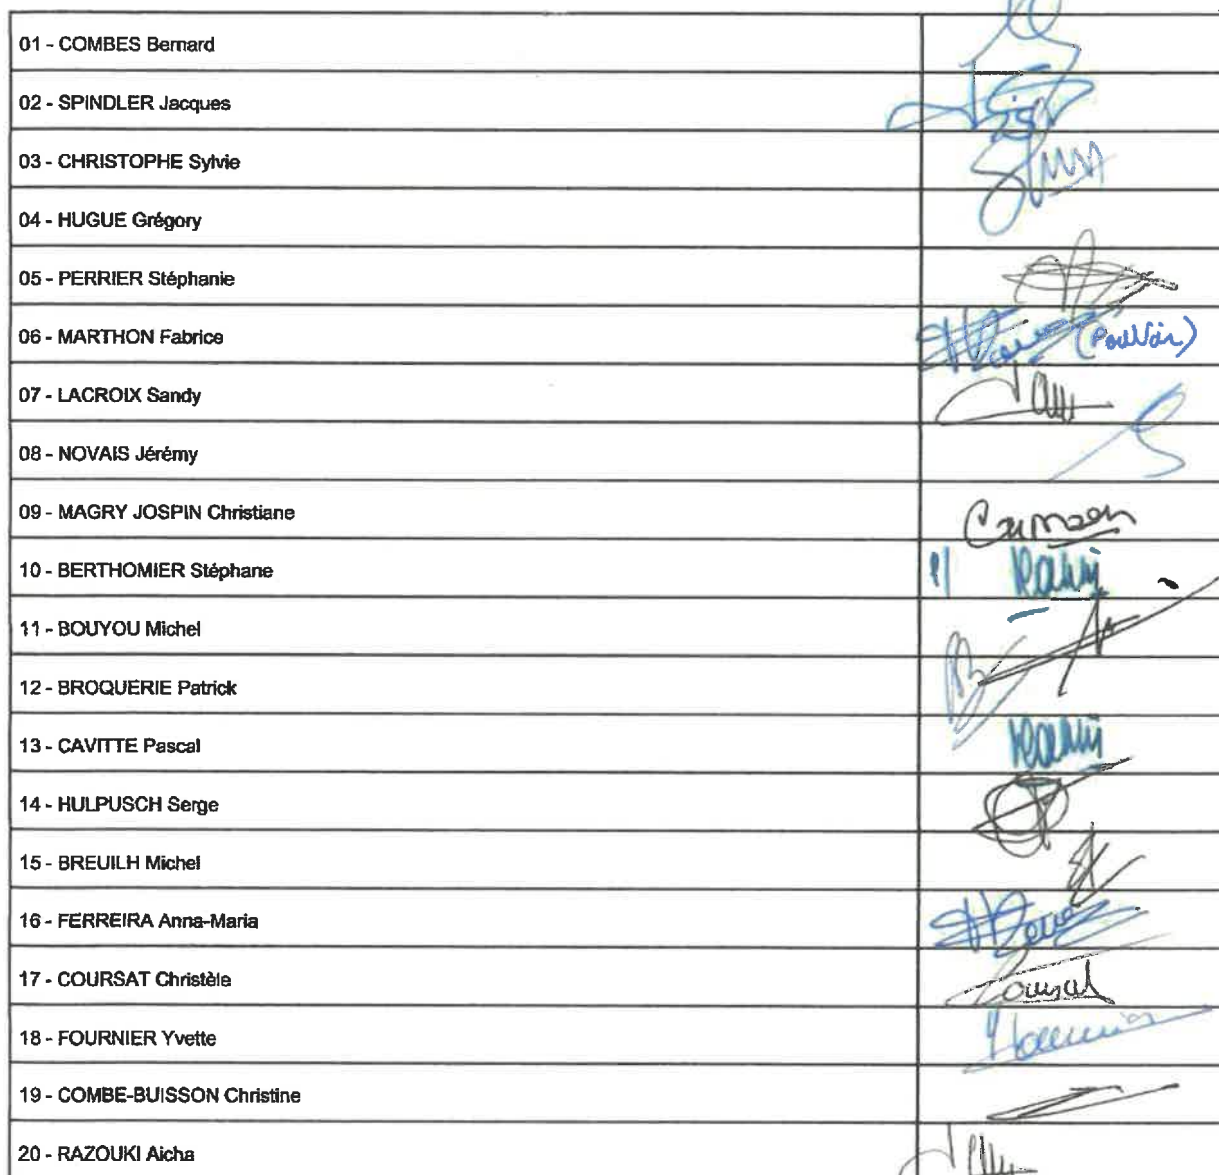 01 - COMBES Bernard
02 - SPINDLER Jacques
03 - CHRISTOPHE Sylvie
04 - HUGUE Grégory
05 - PERRIER Stéphanie
06 - MARTHON Fabrice (Pouvoir)
07 - LACROIX Sandy
08 - NOVAIS Jérémy
09 - MAGRY JOSPIN Christiane
10 - BERTHOMIER Stéphane
11 - BOUYOU Michel
12 - BROQUERIE Patrick
13 - CAVITTE Pascal
14 - HULPUSCH Serge
15 - BREUILH Michel
16 - FERREIRA Anna-Maria
17 - COURSAT Christèle
18 - FOURNIER Yvette
19 - COMBE-BUISSON Christine
20 - RAZOUKI Aicha